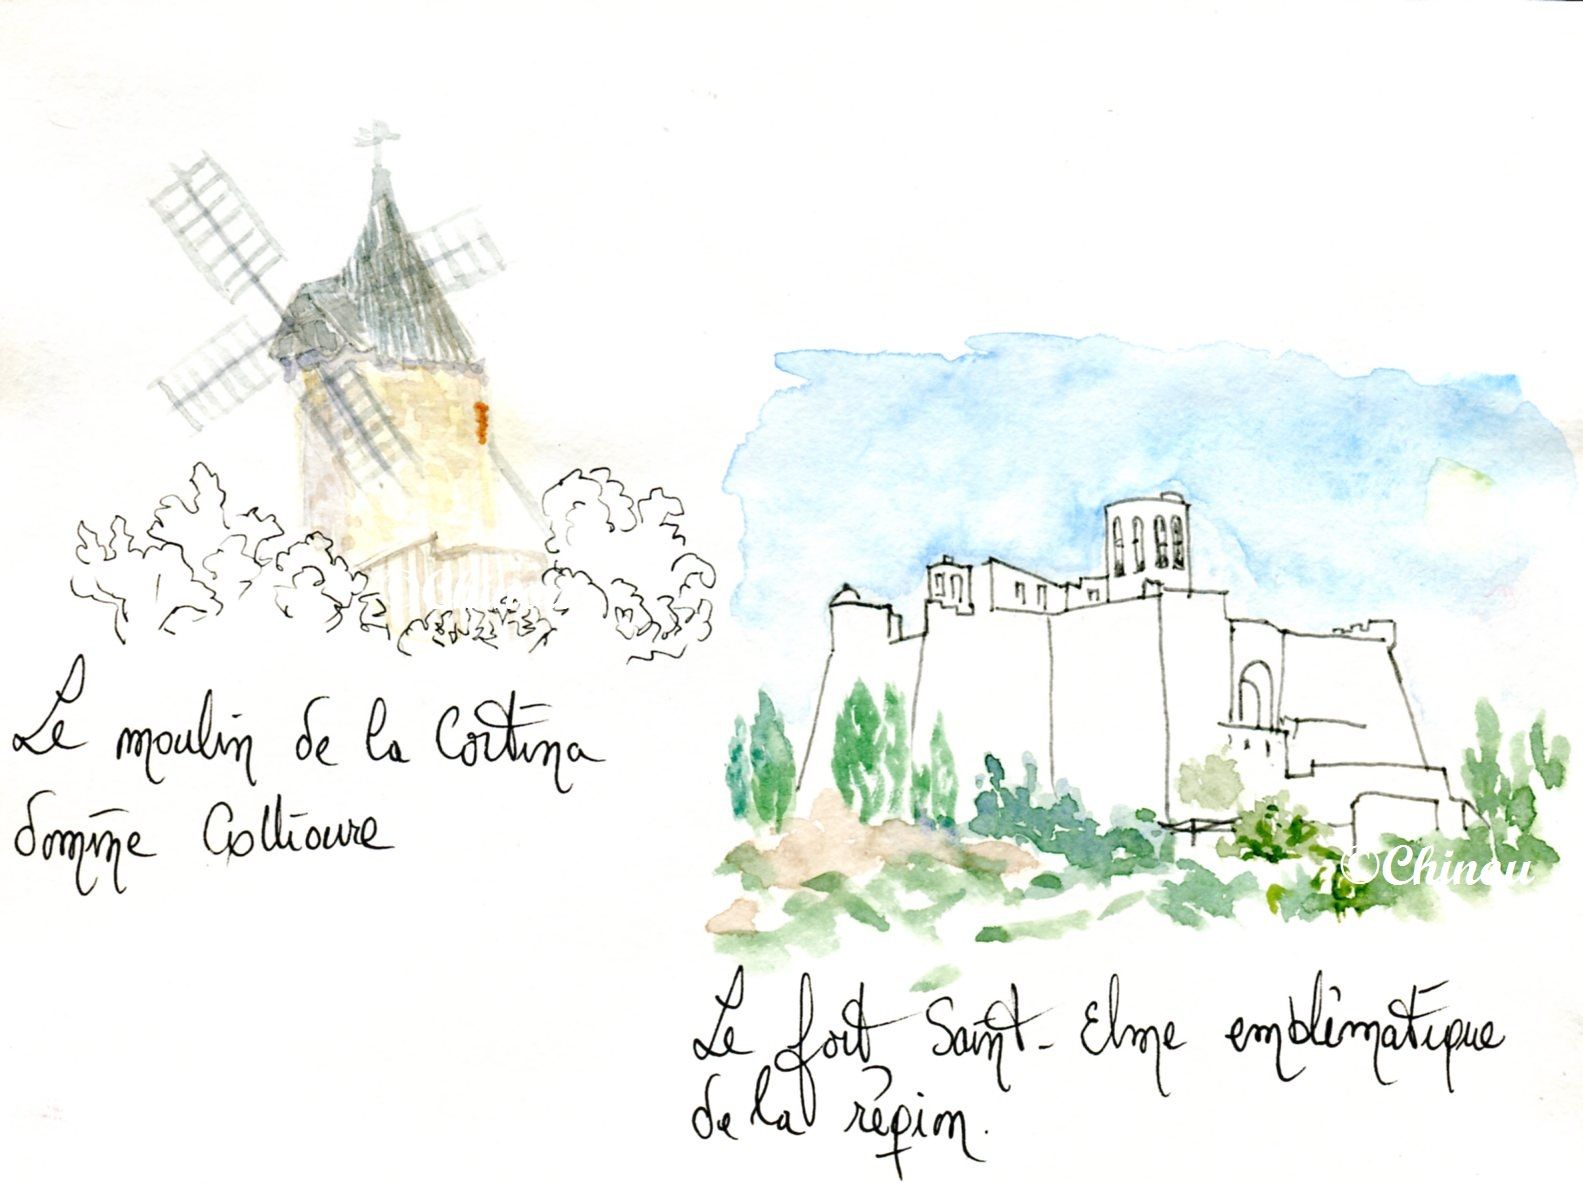 Le moulin de la Cortina
domine Collioure
Le fort Saint-Elme emblèmatique
de la région.
©Chinou